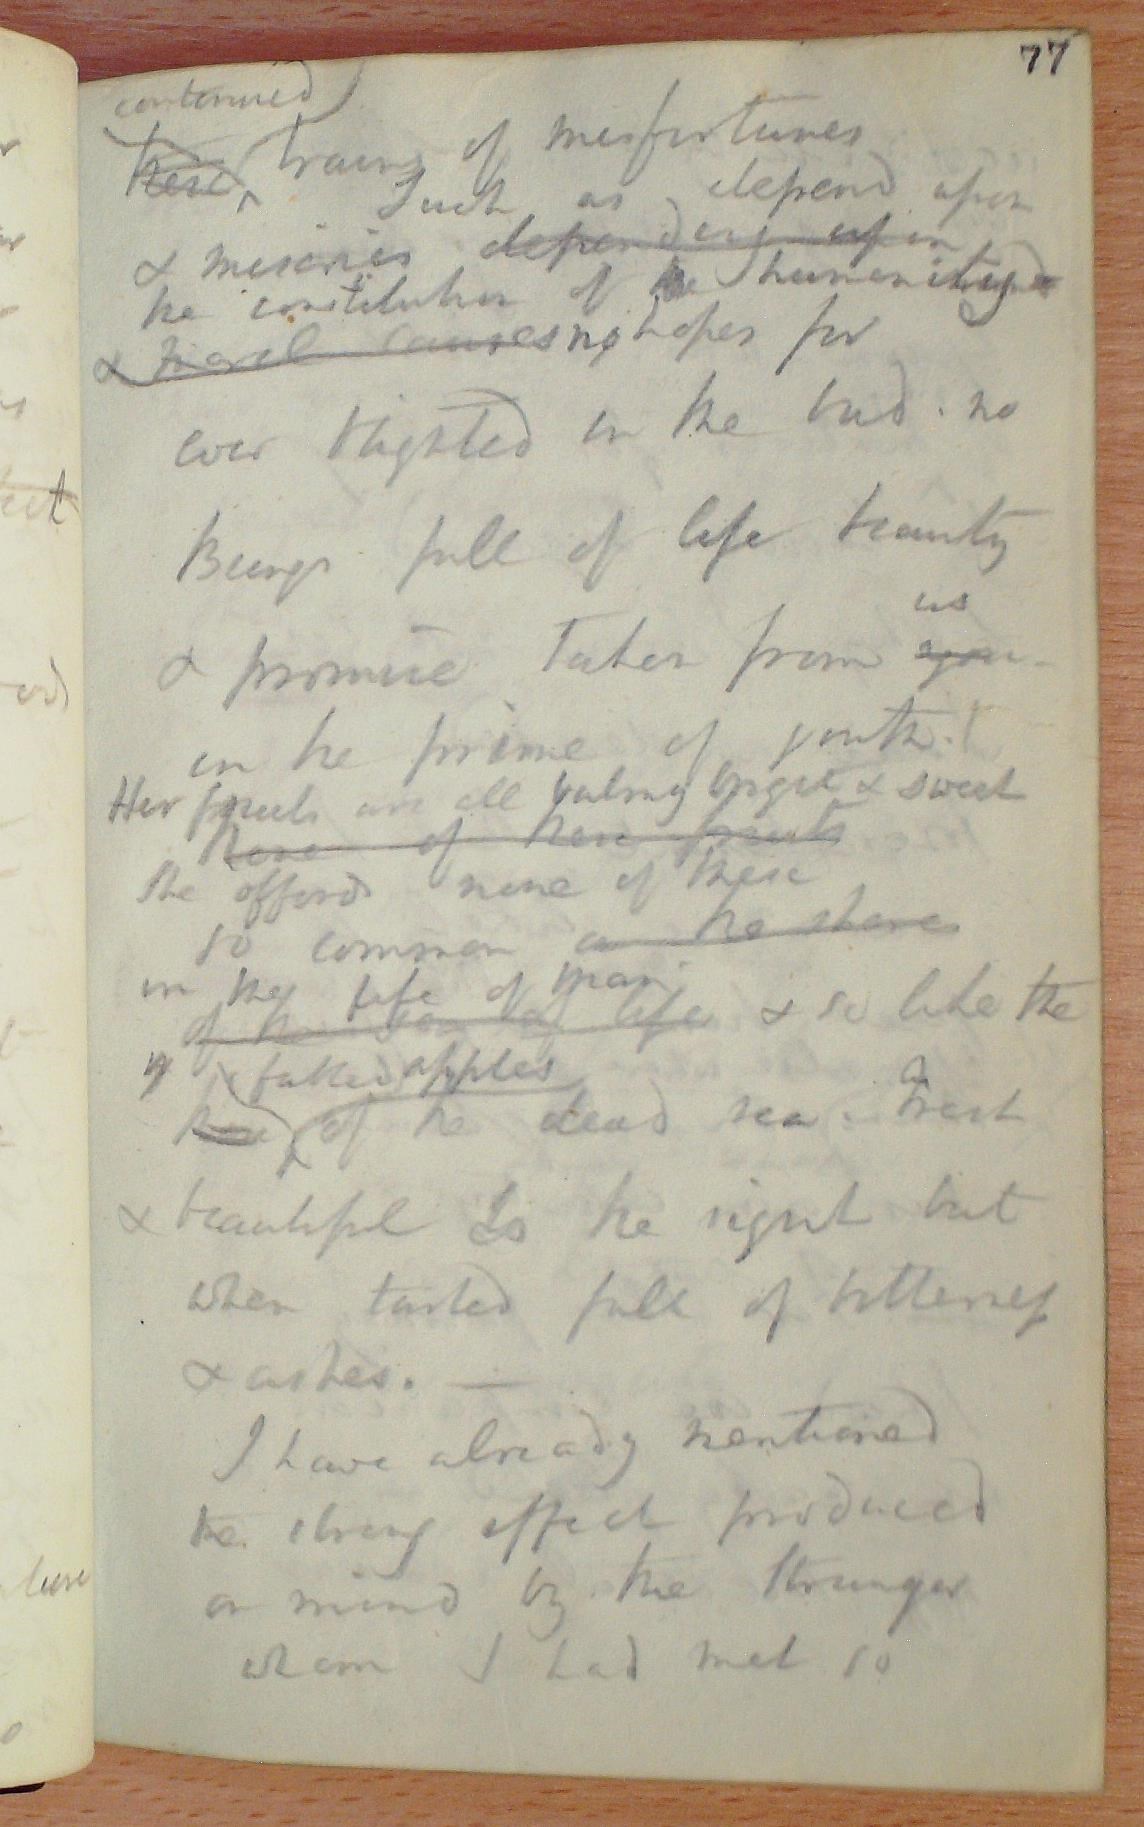 77
continued
these trains of misfortunes
Such as depend upon
& miseries depending upon
the constitution of the humanity
& moral causes no hopes for
ever blighted in the bud. no
Beings full of life beauty
us
& promise taken from you
in the prime of youth!
Her fruits are all balmy bright & sweet
None of these fruits
she affords none of these
so common on the shores
in the life of man
of the sea of life & so like the
fabled apples
of the dead sea. Fresh
& beautiful to the sight but
when tasted full of bitterness
& ashes. —
I have already mentioned
the strong effect produced
on mind by the stranger
whom I had met so